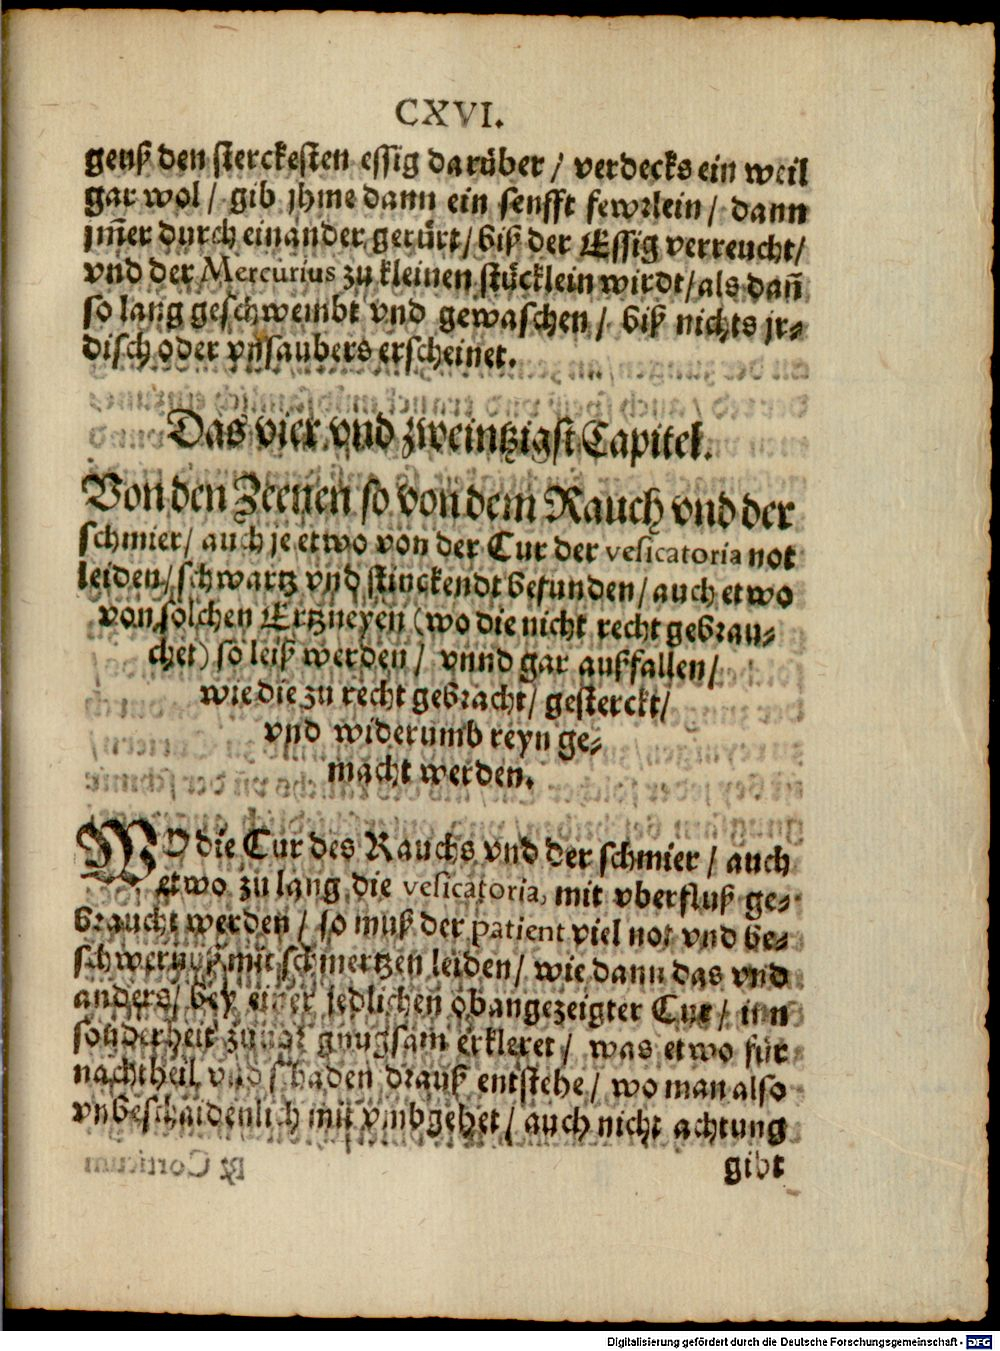 CXVI.
geuß den sterckesten essig darüber / verdecks ein weil
gar wol / gib jhme dann ein senfft fewrlein / dann
jm̄er durch einander gerürt / biß der Essig verreucht /
vnd der Mercurius zu kleinen stücklein wirdt / als dañ
so lang geschweinbt vnd gewaschen / biß nichts jr-
disch oder vnsaubers erscheinet.
Das vier vnd zweintzigst Capitel.
Von den Zeenen so von dem Rauch vnd der
schmier / auch je etwo von der Cur der vesicatoria not
leiden / schwartz vnd stinckendt befunden / auch etwo
von solchen Ertzneyen (wo die nicht recht gebrau-
chet) so leiß werden / vnnd gar außfallen /
wie die zu recht gebracht / gesterckt /
vnd widerumb reyn ge-
macht werden.
WO die Cur des Rauchs vnd der schmier / auch
etwo zu lang die vesicatoria, mit vberfluß ge-
braucht werden / so muß der patient viel not vnd be-
schwernuß mit schmertzen leiden / wie dann das vnd
anders / bey einer jedlichen obangezeigter Cur / inn
sonderheit gnugsam erkleret / was etwo für
nachtheil vnd schaden drauß entstehe / wo man also
vnbeschaidenlich mit vmbgehet / auch nicht achtung
gibt
Digitalisierung gefördert durch die Deutsche Forschungsgemeinschaft - DFG